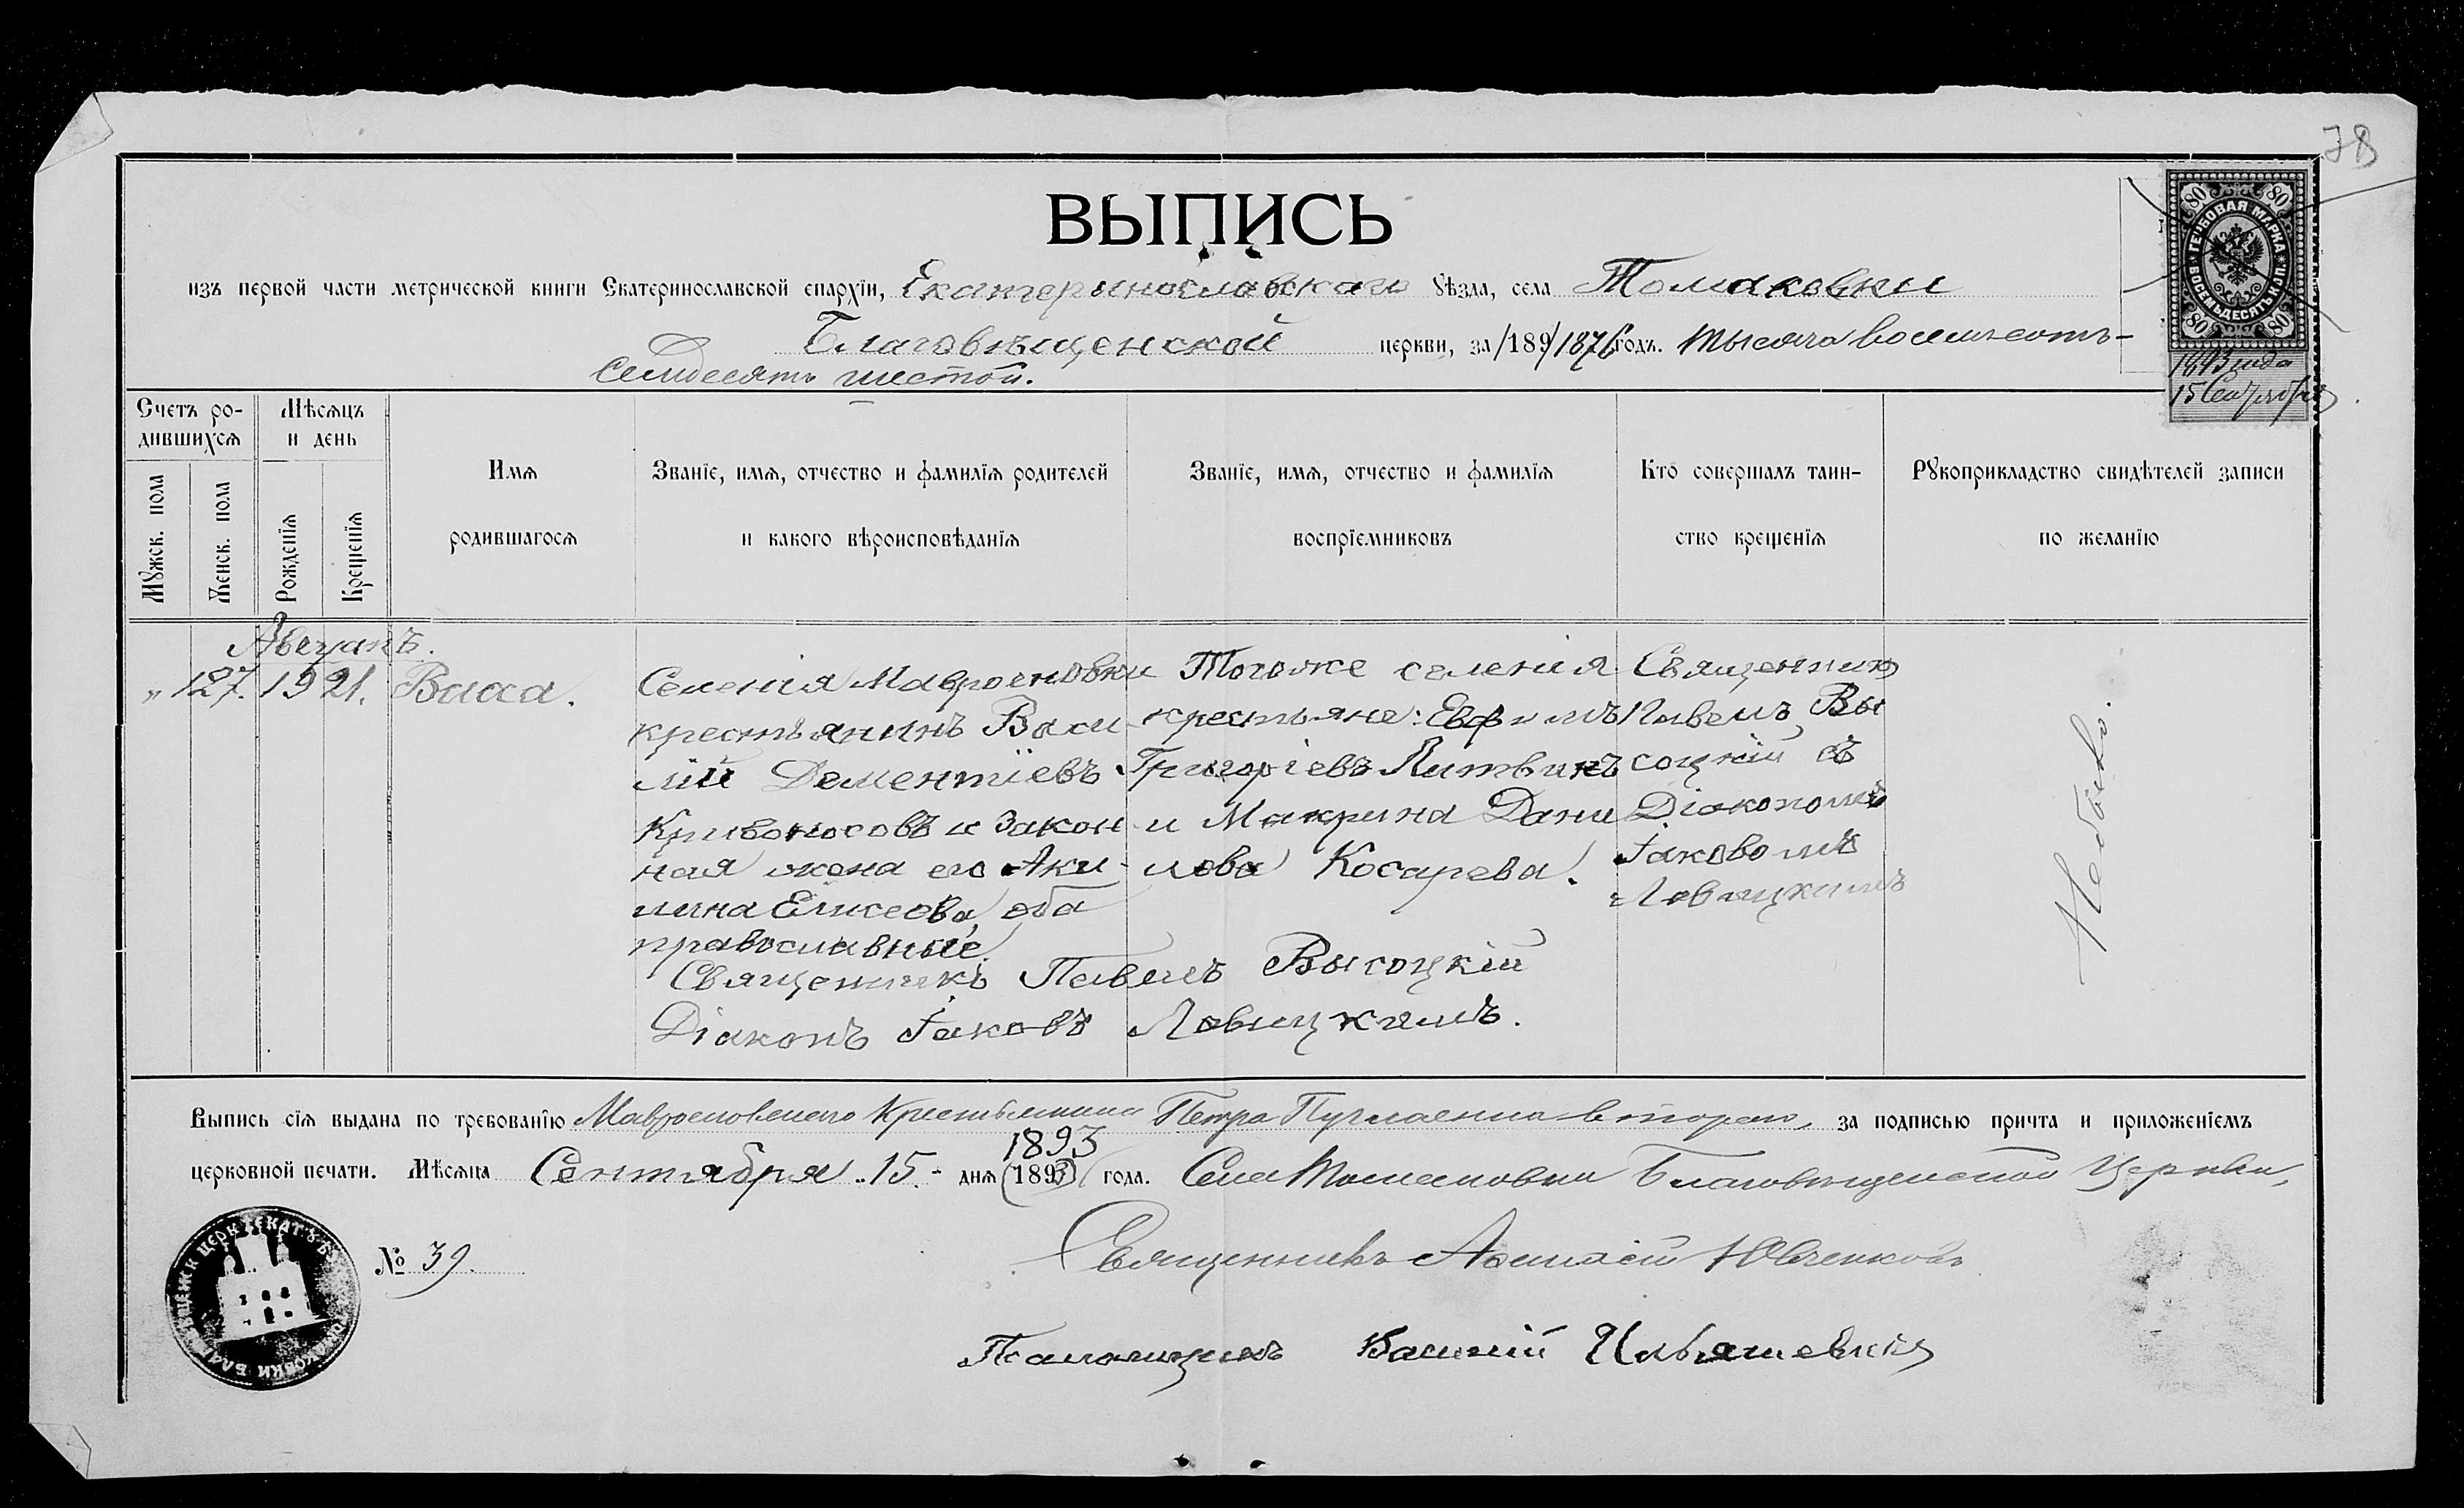 78
ВЫПИСЬ
изъ первой части метрической книги Екатеринославской епархїи, Екатеринославскаго Уѣзда, села Томаковки
Благовѣщенской церкви, за /189/ 1876 годъ. Тысяча восемьсотъ-
семдесятъ шестой.
ГЕРБОВАЯ МАРКА
80 80
ВОСЕМЬДЕСЯТЪ КОП.
80 80
1893 года
15 Сентября
Счетъ ро-
дившихсѧ
Мужск. пола
Женск. пола
Мѣсѧцъ
и день
Рожденїѧ
Крещенїѧ
Имѧ
родившагосѧ
Званїе, имѧ, отчество и фамилїѧ родителей
и какого вѣроисповѣданїѧ
Званїе, имѧ, отчество и фамилїѧ
воспрїемниковъ
Кто совершалъ таин-
ство крещенїѧ
Рукоприкладство свидѣтелей записи
по желанїю
Августъ.
„ 127. 19 21. Васса.
Селенія Мавроеновки
крестьянинъ Васи-
лій Дементіевъ
Кривоносовъ и закон-
ная жена его Аки-
лина Елисеева, оба
православные.
Тогоже селенія
крестьяне: Евфимъ
Григоріевъ Литвинъ
и Макрина Дани-
лова Косарева.
Священникъ
Павелъ Вы
соцкій съ
Діакономъ
Іаковомъ
Левицкимъ
Небыло.
Священникъ Павелъ Высоцкій
Діаконъ Іаковъ Левицкимъ.
Выпись сїѧ выдана по требованїю Мавроеновскаго Крестьянина Петра втораго, за подписью причта и приложенїемъ
1893
церковной печати. Мѣсѧца Сентября „15„- днѧ (1893) года. Села Томаковки Благовѣщенской Церкви,
№ 39.
Священникъ Ювченковъ
Псаломщикъ Василій Ильяшевичъ